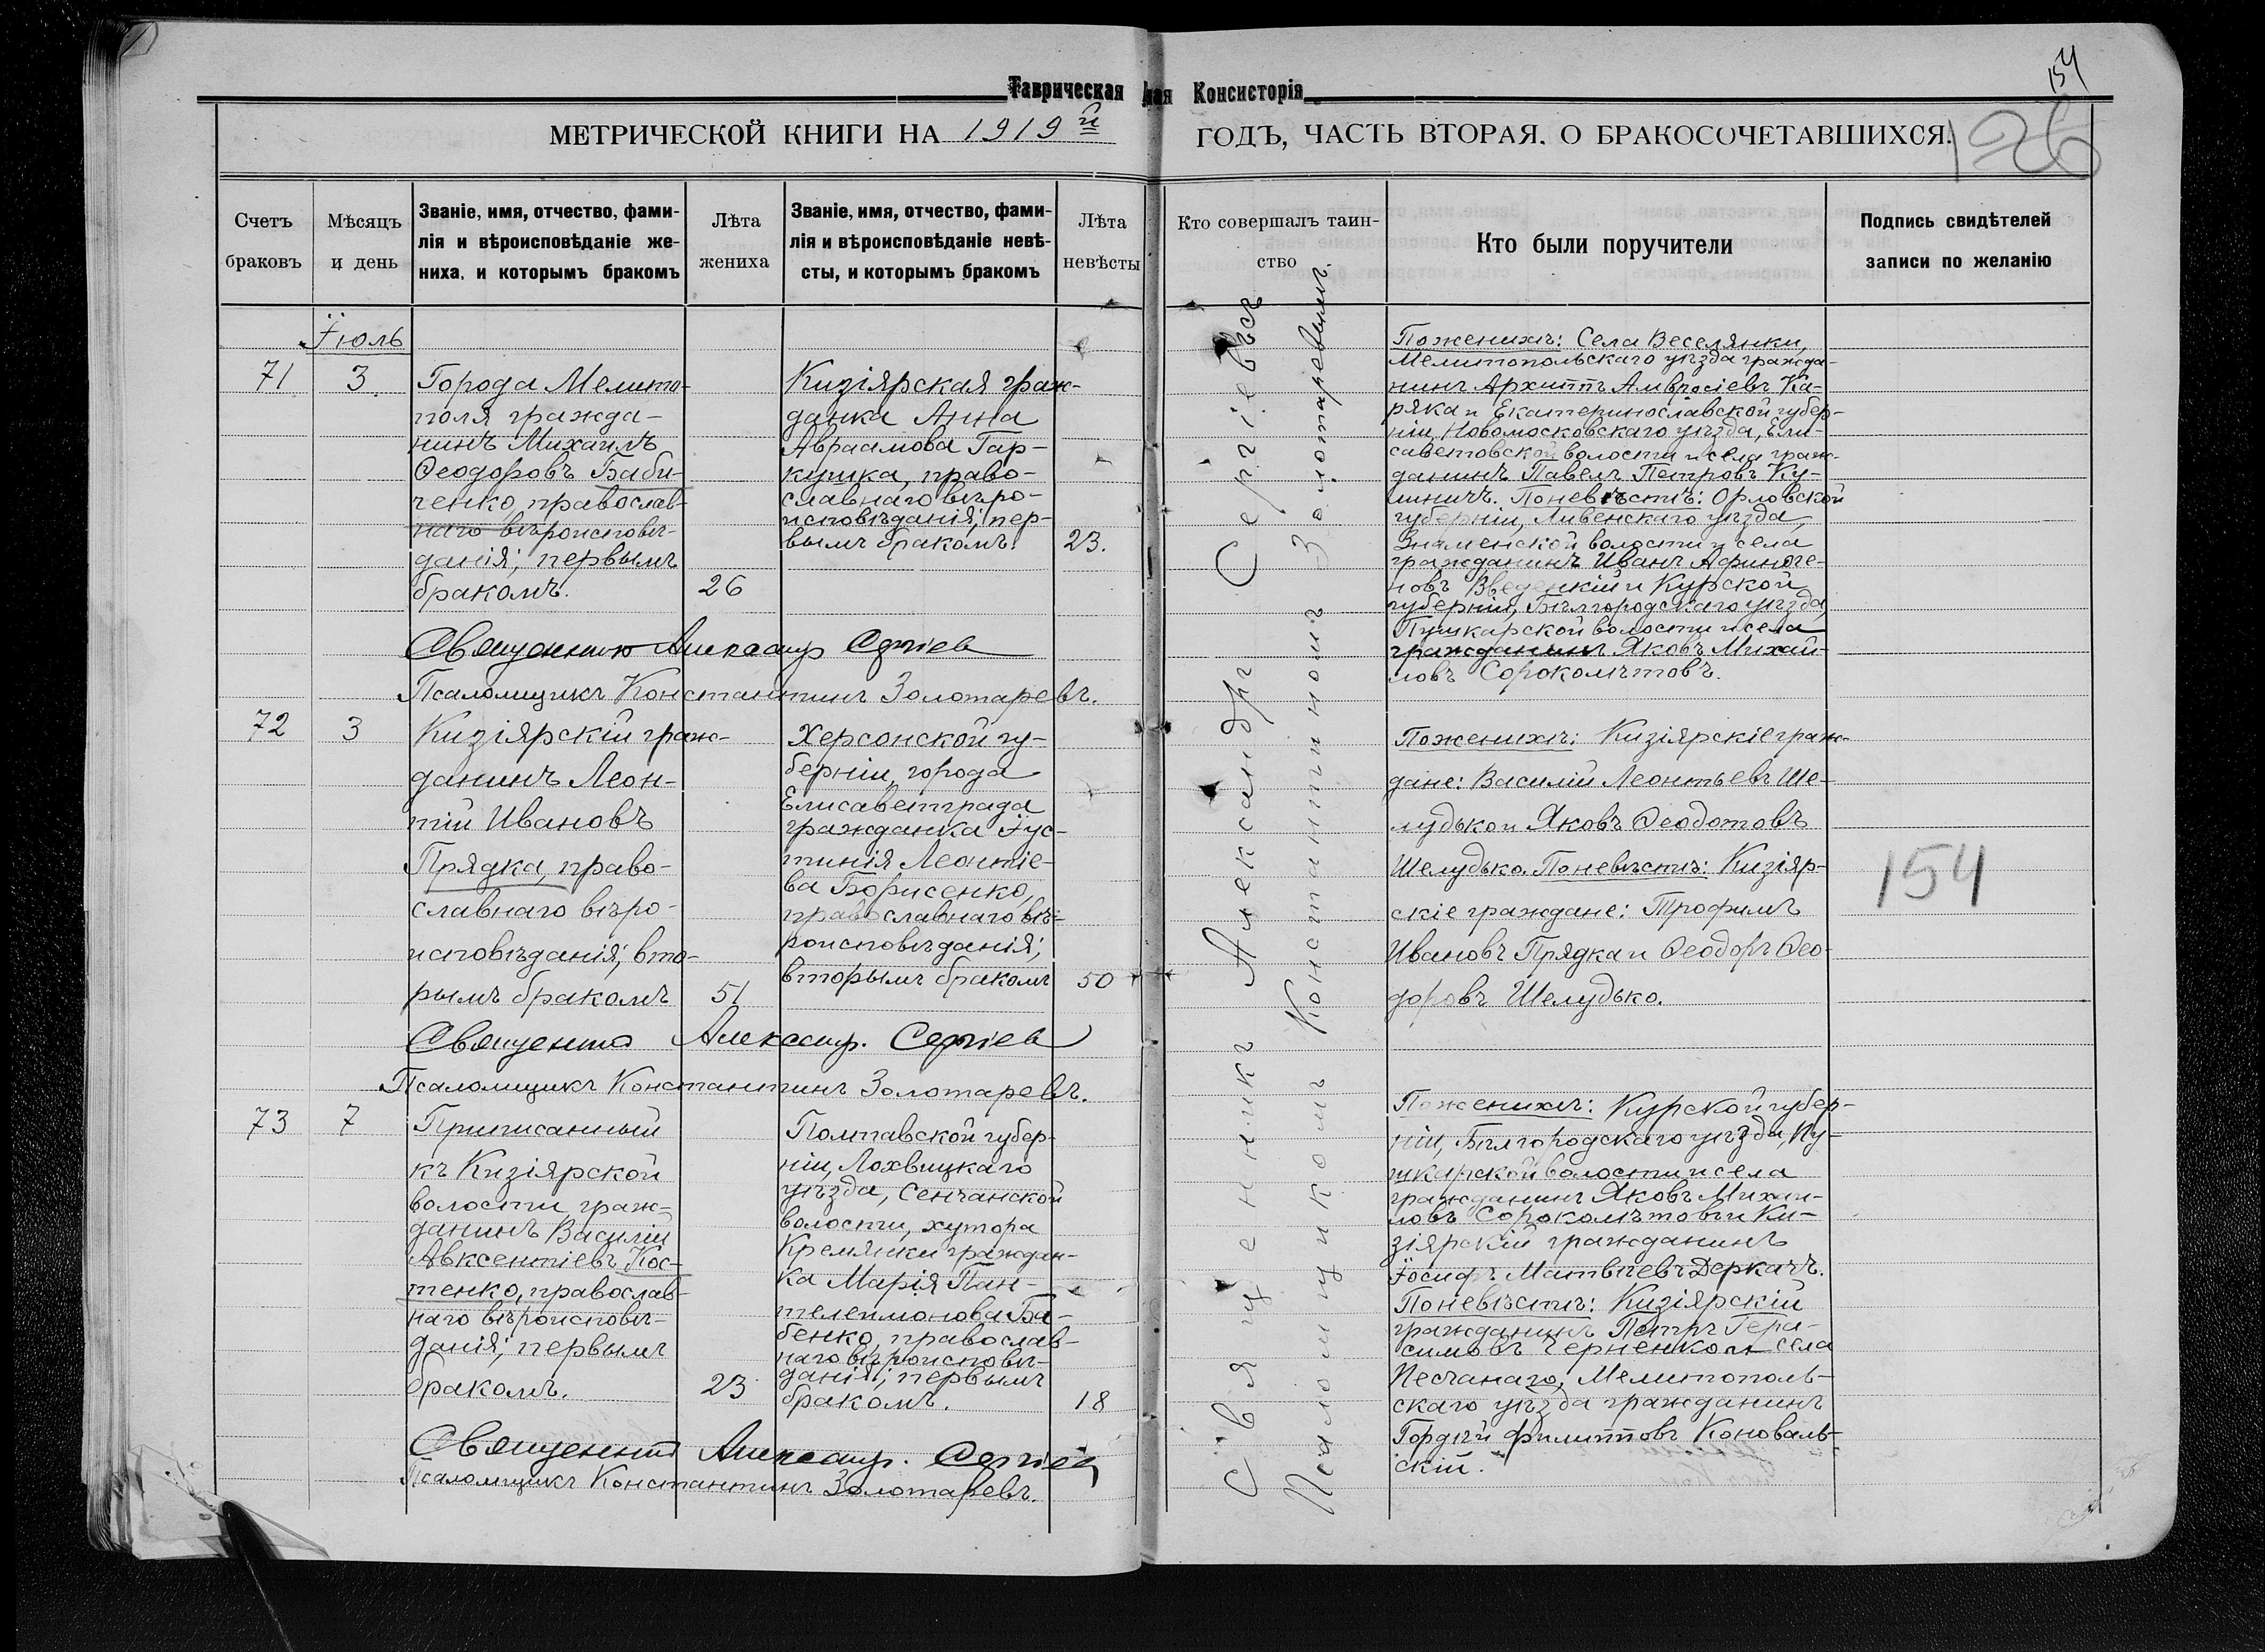 154
Таврическая ная Консисторія
126
МЕТРИЧЕСКОЙ КНИГИ НА 1919й ГОДЪ, ЧАСТЬ ВТОРАЯ. О БРАКОСОЧЕТАВШИХСЯ.
Счетъ
браковъ
Мѣсяцъ
и день
Званіе, имя, отчество, фами-
лія и вѣроисповѣданіе же-
ниха, и которымъ бракомъ
Лѣта
жениха
Званіе, имя, отчество, фами-
лія и вѣроисповѣданіе невѣ-
сты, и которымъ бракомъ
Лѣта
невѣсты
Кто совершалъ таин-
ство
Кто были поручители
Подпись свидѣтелей
записи по желанію
Їюль
71
3
Города Мелито-
поля гражда-
нинъ Михаилъ
Ѳеодоровъ Баби-
ченко, православ-
наго вѣроисповѣ-
данія; первымъ
бракомъ.
26
Кизіярская граж-
данка Анна
Авраамова Гар-
куша, право-
славнаго вѣро-
исповѣданія; пер-
вымъ бракомъ.
23.
Поженихѣ: Села Веселянки,
Мелитопольскаго уѣзда гражда-
нинъ Архиппъ Амвросіевъ Ка-
ряка и Екатеринославской губер-
ніи, Новомосковскаго уѣзда, Ели-
саветовской волости и села граж-
данинъ Павелъ Петровъ Ку-
шничъ. Поневѣстѣ: Орловской
губерніи, Ливенскаго уѣзда,
Знаменской волости и села
гражданинъ Иванъ Афиноге-
новъ Введенкій и Курской
губерніи, Бѣлгородскаго уѣзда,
Пушкарской волости и села
гражданинъ Яковъ Михай-
ловъ Сороколѣтовъ.
Священникъ Александр Сергіев
Псаломщикъ Константинъ Золотаревъ.
72
3
Кизіярскій граж-
данинъ Леон-
тій Ивановъ
Прядка, право-
славнаго вѣро-
исповѣданія; вто-
рымъ бракомъ
51
Херсонской гу-
берніи, города
Елисаветграда
гражданка Їус-
тинія Леонтіе-
ва Борисенко,
православнаго вѣ-
роисповѣданія;
вторымъ бракомъ
50
Поженихѣ: Кизіярскіе граж-
дане: Василій Леонтьевъ Ше-
лудько и Яковъ Ѳеодотовъ
Шелудько. Поневѣстѣ: Кизіяр-
скіе граждане: Трофимъ
Ивановъ Прядка и Ѳеодоръ Ѳео-
доровъ Шелудько.
154
Священникъ Александр. Сергіев
Псаломщикъ Константинъ Золотаревъ.
73
7
Приписанный
къ Кизіярской
волости, граж-
данинъ Василій
Авксентіевъ Кос-
тенко, православ-
наго вѣроисповѣ-
данія; первымъ
бракомъ.
23
Полтавской губер-
ніи, Лохвицкаго
уѣзда, Сенчанской
волости, хутора
Кремянки граждан-
ка Марія Пан-
телеимонова Ба-
бенко, православ-
наго вѣроисповѣ-
данія; первымъ
бракомъ.
18
Поженихѣ: Курской губер-
ніи, Бѣлгородскаго уѣзда, Пу-
шкарской волости и села
гражданинъ Яковъ Михаи-
ловъ Сороколѣтовъ и Ки-
зіярскій гражданинъ
Їосифъ Матвѣевъ Деркачъ.
Поневѣстѣ: Кизіярскій
гражданинъ Петръ Гера-
симовъ Черненко и села
Песчанаго, Мелитополь-
скаго уѣзда гражданинъ
Гордѣй Филипповъ Коноваль-
скій.
Священникъ Александр. Сергіев
Псаломщикъ Константинъ Золотаревъ.
Священникъ Александръ Сергіевъ съ
Псаломщикомъ Константиномъ Золотаревымъ.